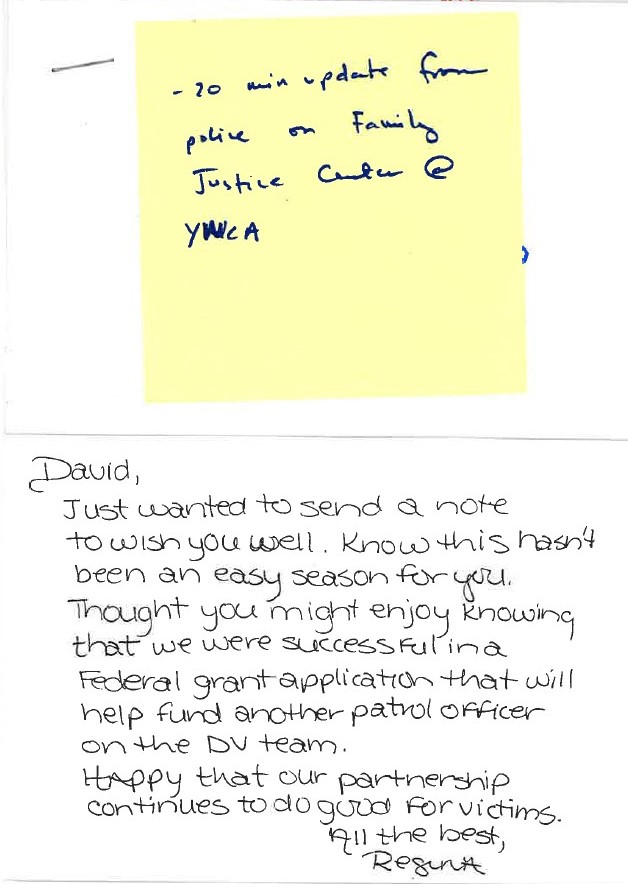 - 20 min update from
police on Family
Justice Center @
YWCA
David,
Just wanted to send a note
to wish you well. Know this hasn't
been an easy season for you.
Thought you might enjoy knowing
that we were successful in a
Federal grant application that will
help fund another patrol officer
on the DV team.
Happy that our partnership
continues to do good for victims.
All the best,
Regina